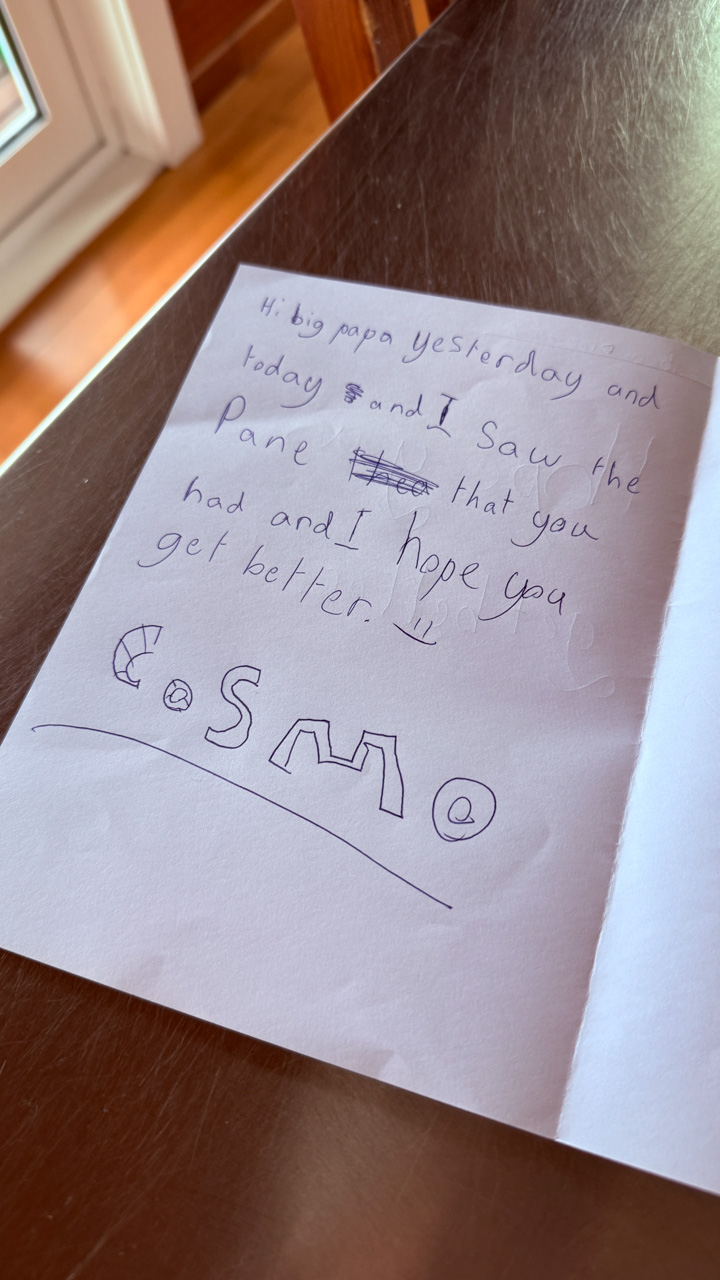 Hi big papa yesterday and
today and I saw the
Pane that you
had and I hope you
get better.
CoSMo